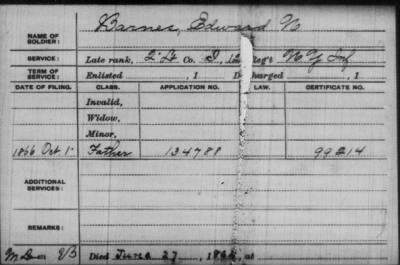 NAME OF SOLDIER: Barnes, Edward
SERVICE: Late rank, 2' Lt Co. I, 12 Reg't N Y Inf
TERM OF SERVICE: Enlisted , 1 Discharged , 1
DATE OF FILING. CLASS. APPLICATION NO. LAW. CERTIFICATE NO.
Invalid,
Widow,
Minor,
1866 Oct 1 Father 134788 99214
ADDITIONAL SERVICES:
REMARKS:
Died June 27, at